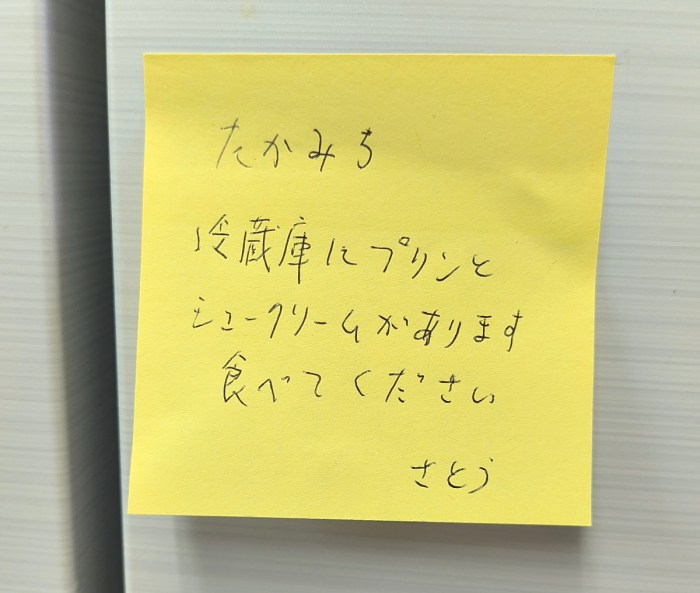 たかみち
冷蔵庫にプリンと
シュークリームがあります
食べてください
さとう